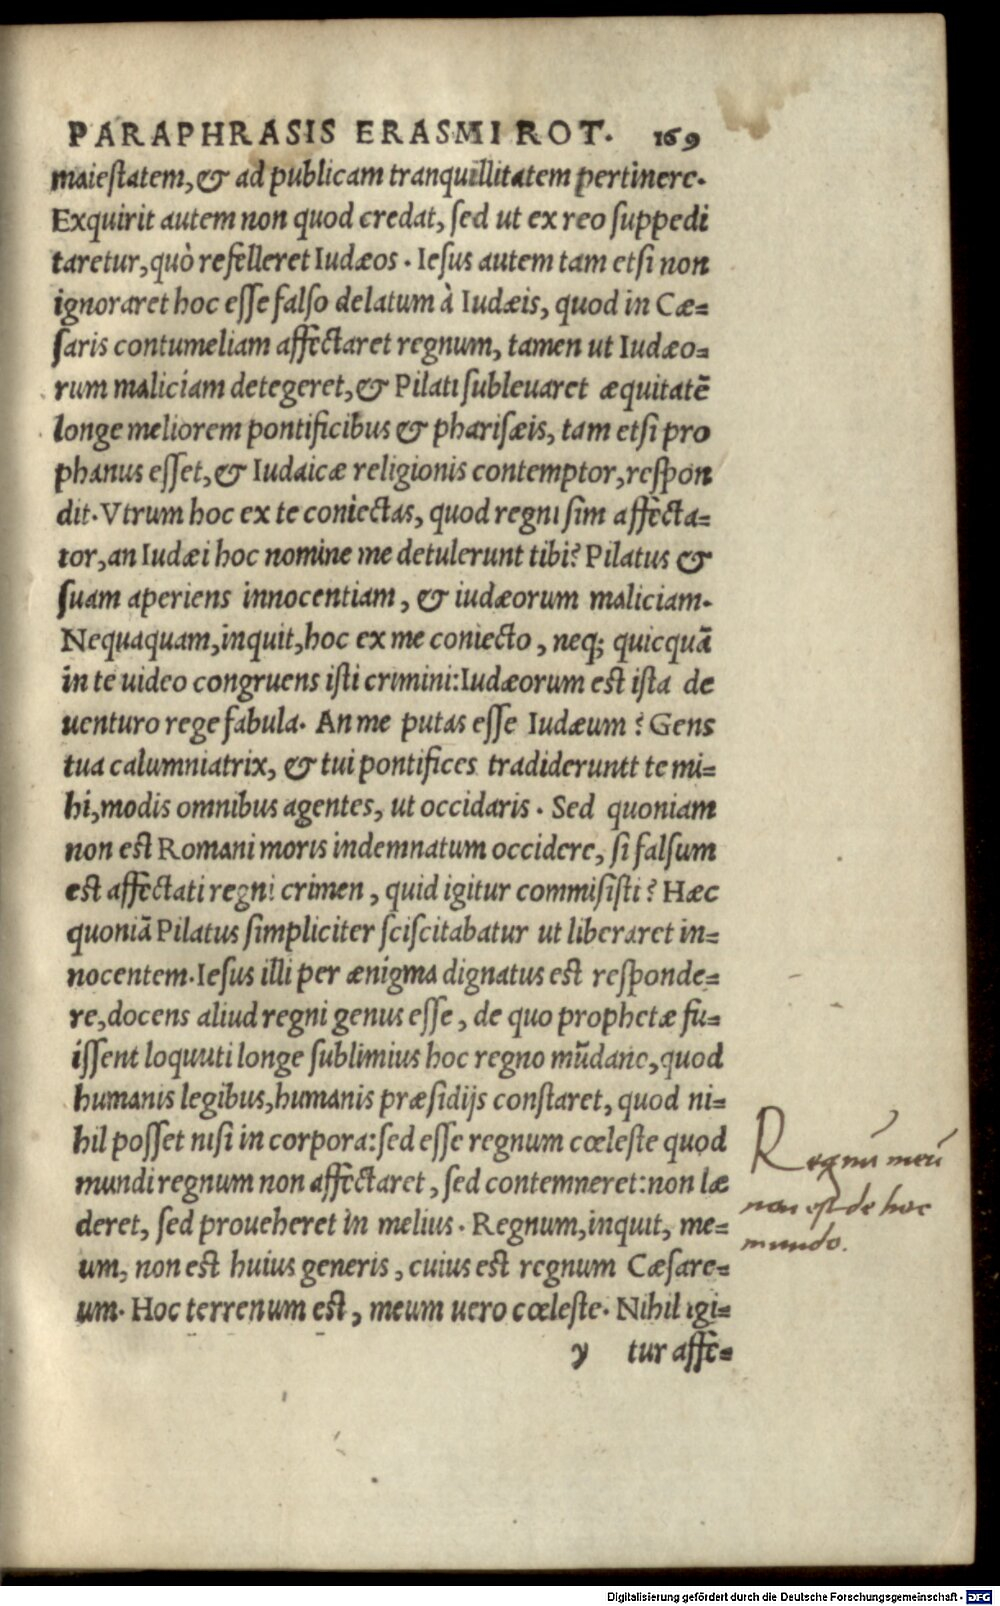 PARAPHRASIS ERASMI ROT. 169
maiestatem, & ad publicam tranquillitatem pertinere.
Exquirit autem non quod credat, sed ut ex reo suppedi
taretur, quò refelleret Iudæos. Iesus autem tam etsi non
ignoraret hoc esse falso delatum à Iudæis, quod in Cæ-
saris contumeliam affectaret regnum, tamen ut Iudæo-
rum maliciam detegeret, & Pilati subleuaret æquitatē
longe meliorem pontificibus & pharisæis, tam etsi pro
phanus esset, & Iudaicæ religionis contemptor, respon
dit. Vtrum hoc ex te coniectas, quod regni sim affecta-
tor, an Iudæi hoc nomine me detulerunt tibi? Pilatus &
suam aperiens innocentiam, & iudæorum maliciam.
Nequaquam, inquit, hoc ex me coniecto, neq; quicquā
in te uideo congruens isti crimini: Iudæorum est ista de
uenturo rege fabula. An me putas esse Iudæum? Gens
tua calumniatrix, & tui pontifices tradideruntt te mi-
hi, modis omnibus agentes, ut occidaris. Sed quoniam
non est Romani moris indemnatum occidere, si falsum
est affectati regni crimen, quid igitur commisisti? Hæc
quoniā Pilatus simpliciter sciscitabatur ut liberaret in-
nocentem. Iesus illi per ænigma dignatus est responde-
re, docens aliud regni genus esse, de quo prophetæ fu-
issent loquuti longe sublimius hoc regno mūdano, quod
humanis legibus, humanis præsidijs constaret, quod ni-
hil posset nisi in corpora: sed esse regnum cœleste quod
mundi regnum non affectaret, sed contemneret: non læ
deret, sed proueheret in melius. Regnum, inquit, me-
um, non est huius generis, cuius est regnum Cæsare-
um. Hoc terrenum est, meum uero cœleste. Nihil igi-
y tur affe-
Regnū meū
non est de hoc
mundo.
Digitalisierung gefördert durch die Deutsche Forschungsgemeinschaft - DFG